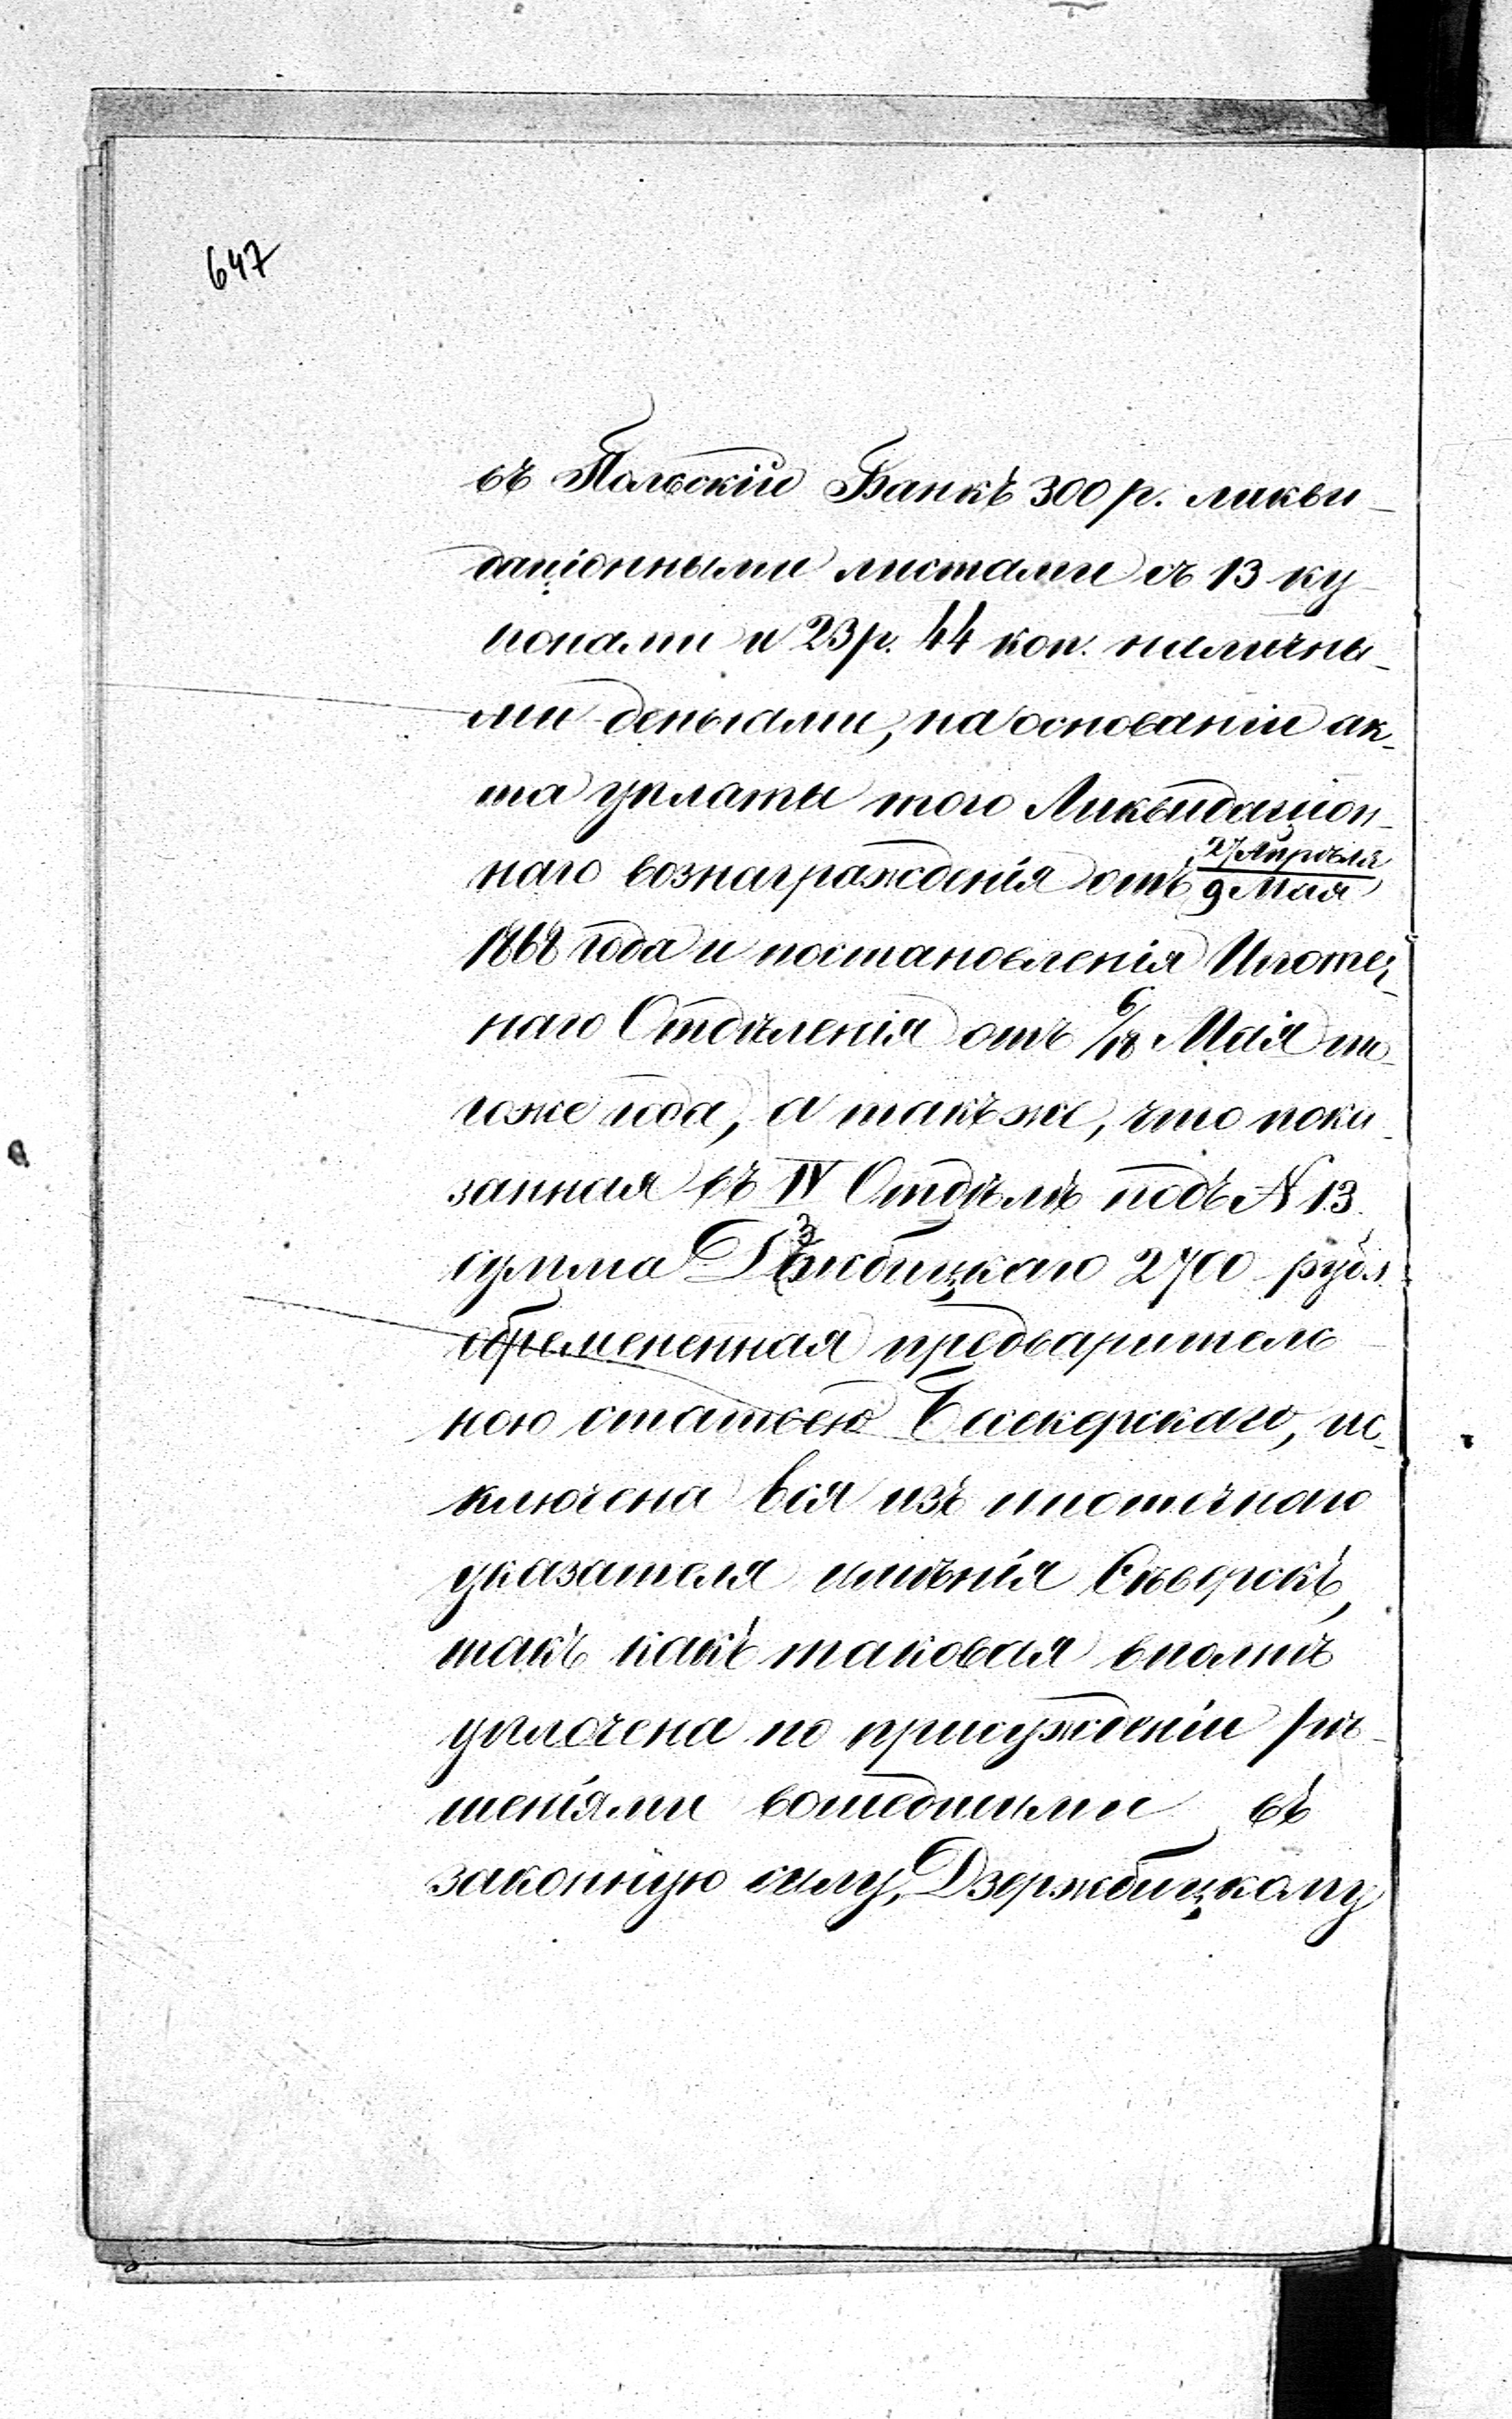 647
въ Польскій Банкъ 300 р. ликви-
даціонными листами съ 13 ку-
понами и 23 р. 44 коп. наличны-
ми деньгами, на основаніи ак-
та уплаты того Ликвидаціон-
наго вознагражденія отъ 27 Апрѣля / 9 Мая
1868 года и постановленія Ипотеч-
наго Отдѣленія отъ 6/18 Маія то-
гоже года, а такъ же, что пока-
занная въ IV Отдѣлѣ подъ № 13
сумма Дзержбицкаго 2700 рубл.
обремененная предваритель-
ною статьею Бесекерскаго, ис-
ключена вся изъ ипотечнаго
указателя имѣнія Сѣверскъ,
такъ какъ таковая вполнѣ
уплочена по присужденіи рѣ-
шеніями вошедшими въ
законную силу, Дзержбицкому